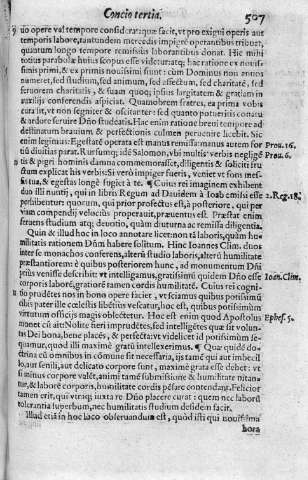 Concio tertia. 507
uo opere val tempore considuratque facit, vt pro exigui operis aut
temporis labore, tantundem mercedis impigrè operantibus tribuat,
quantum longo tempore remissiùs laborantibus donat. Hic mihi
totius parabolæ huius scopus esse videtur: atq; hac ratione ex nouis-
simis primi, & ex primis nouissimi sunt: cùm Dominus non annos
numeret, sed studium, sed animum, sed affectum, sed charitatē, sed
feruorem charitatis, & suam quoq; ipsius largitatem & gratiam in
auxilijs conferendis aspiciat. Quamobrem fratres, ea prima vobis
cura sit, vt non segniter & oscitanter: sed quanto potueritis conatu
& ardore seruire Dño studeatis. Hac enim ratione breui tempore ad
destinatum brauium, & perfectionis culmen peruenire licebit. Sic
enim legimus: Egestatē operata est manus remissa: manus autem for Prou. 10.
tiū diuitias parat. Rursumq; idē Salomon, vbi multis verbis neglige Prou. 6.
tis & pigri hominis damna commemorasset, diligentis & solicitæ fru
ctum explicat his verbis: Si verò impiger fueris, veniet vt fons mes-
sis tua, & egestas longè fugiet à te. ¶ Cuius rei imaginem exhibent
duo illi nuntij, qui in libris Regum ad Dauidem à Ioab emissi esse 2. Reg. 18.
perhibentur: quorum, qui prior profectus est, à posteriore, qui per
viam compendij velociùs properauit, præuentus est. Præstat enim
feruens studium atq; deuotio, quàm diuturna ac remissa diligentia.
Quin & illud hic in loco annotare licet: non tā laboris, quàm hu
militatis rationem Dñm habere solitum. Hinc Ioannes Clim. duos
inter se monachos conferens, alterū studio laboris, alterū humilitate
præstantiorem è quibus posteriorem hunc, ad monumentum Dñi
priùs venisse describit: vt intelligamus, gratissimū quidem Dño esse Ioan. Clim.
corporis laborē, gratiorē tamen cordis humilitatē. Cuius rei cogni-
tio prudētes nos in bono opere faciet, vt sciamus quibus potissimū
dius pater ille cœlestis studijs vescatur, hoc est, quibus potissimùm
virtutum officijs magis oblectetur. Hoc est enim quod Apostolus Ephes. 5.
monet cùm ait: Nolite fieri imprudētes, sed intelligētes quæ sit volun-
tas Dei bona, bene placēs, & perfecta: vt videlicet id potissimùm se-
quamur, quod illi maximè gratū intellexerimus. ¶ Quæ quidē do-
ctrina etsi omnibus in cōmune sit necessaria, ijs tamē qui aut imbecil
lo, aut senili, aut delicato corpore sunt, maximè grata esse debet: vt
si minùs corpore valēt, animi tamē submissione & humilitate nitan-
tur, & laborē corporis, humilitate cordis pēsare contendant. Felicior
tamen erit, qui vtraq; iuxta re Dño placere curat: quem nec laborū
tolerantia superbum, nec humilitatis studium desidem facit.
Illud etiā in hoc loco obseruandum est, quòd isti qui nouissima
hora